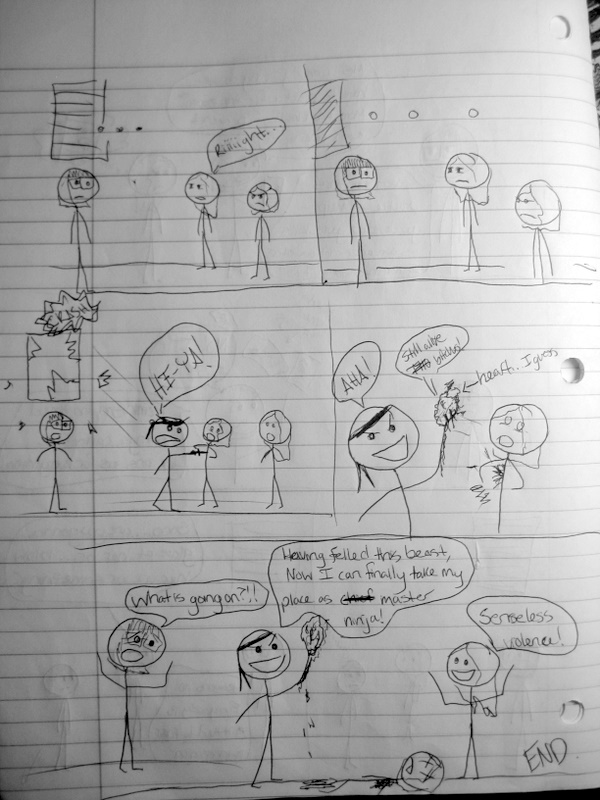 Riiiiight...
HI-YA!
AHA!
Still alive
bitches!
heart. I guess
What is going on?!!
Having felled this beast,
Now I can finally take my
place as chief master
ninja!
Senseless
violence!
END.